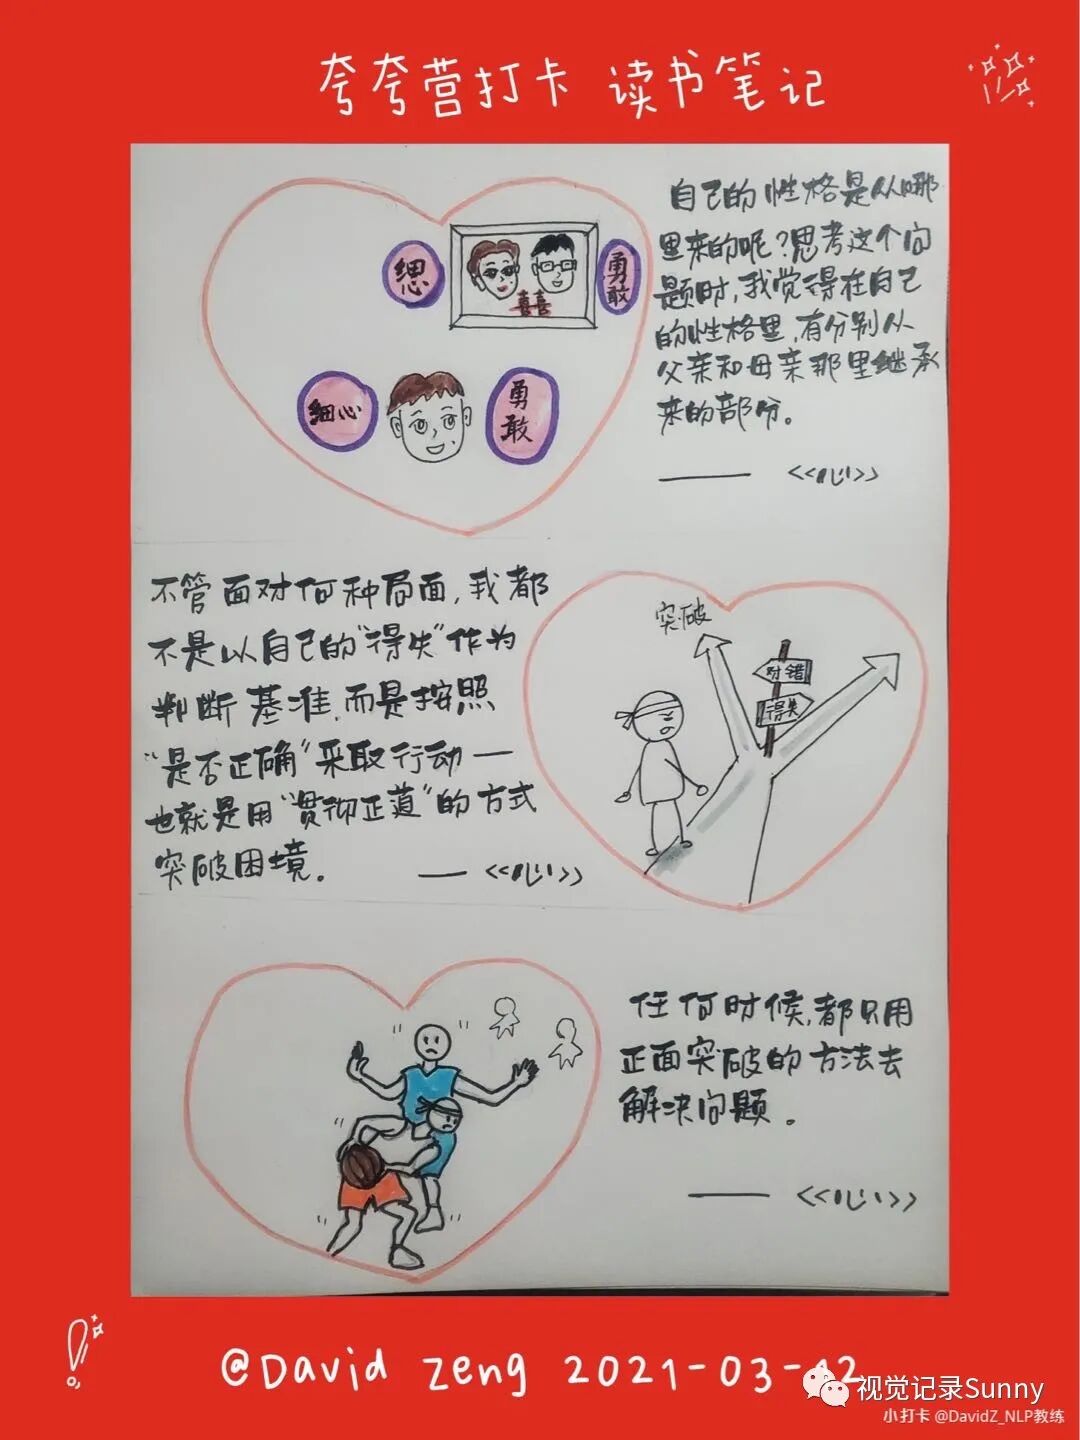 夸夸营打卡 读书笔记
自己的性格是从哪
里来的呢?思考这个问
题时,我觉得在自己
的性格里,有分别从
父亲和母亲那里继承
来的部份。
—— <<心>>
勇敢
囍
细心
勇敢
不管面对何种局面,我都
不是以自己的"得失"作为
判断基准,而是按照
"是否正确"采取行动—
也就是用"贯彻正道"的方式
突破困境。
— <<心>>
突破
对错
得失
任何时候,都只用
正面突破的方法去
解决问题。
—— <<心>>
@David Zeng 2021-03-12
视觉记录Sunny
小打卡 @DavidZ_NLP教练